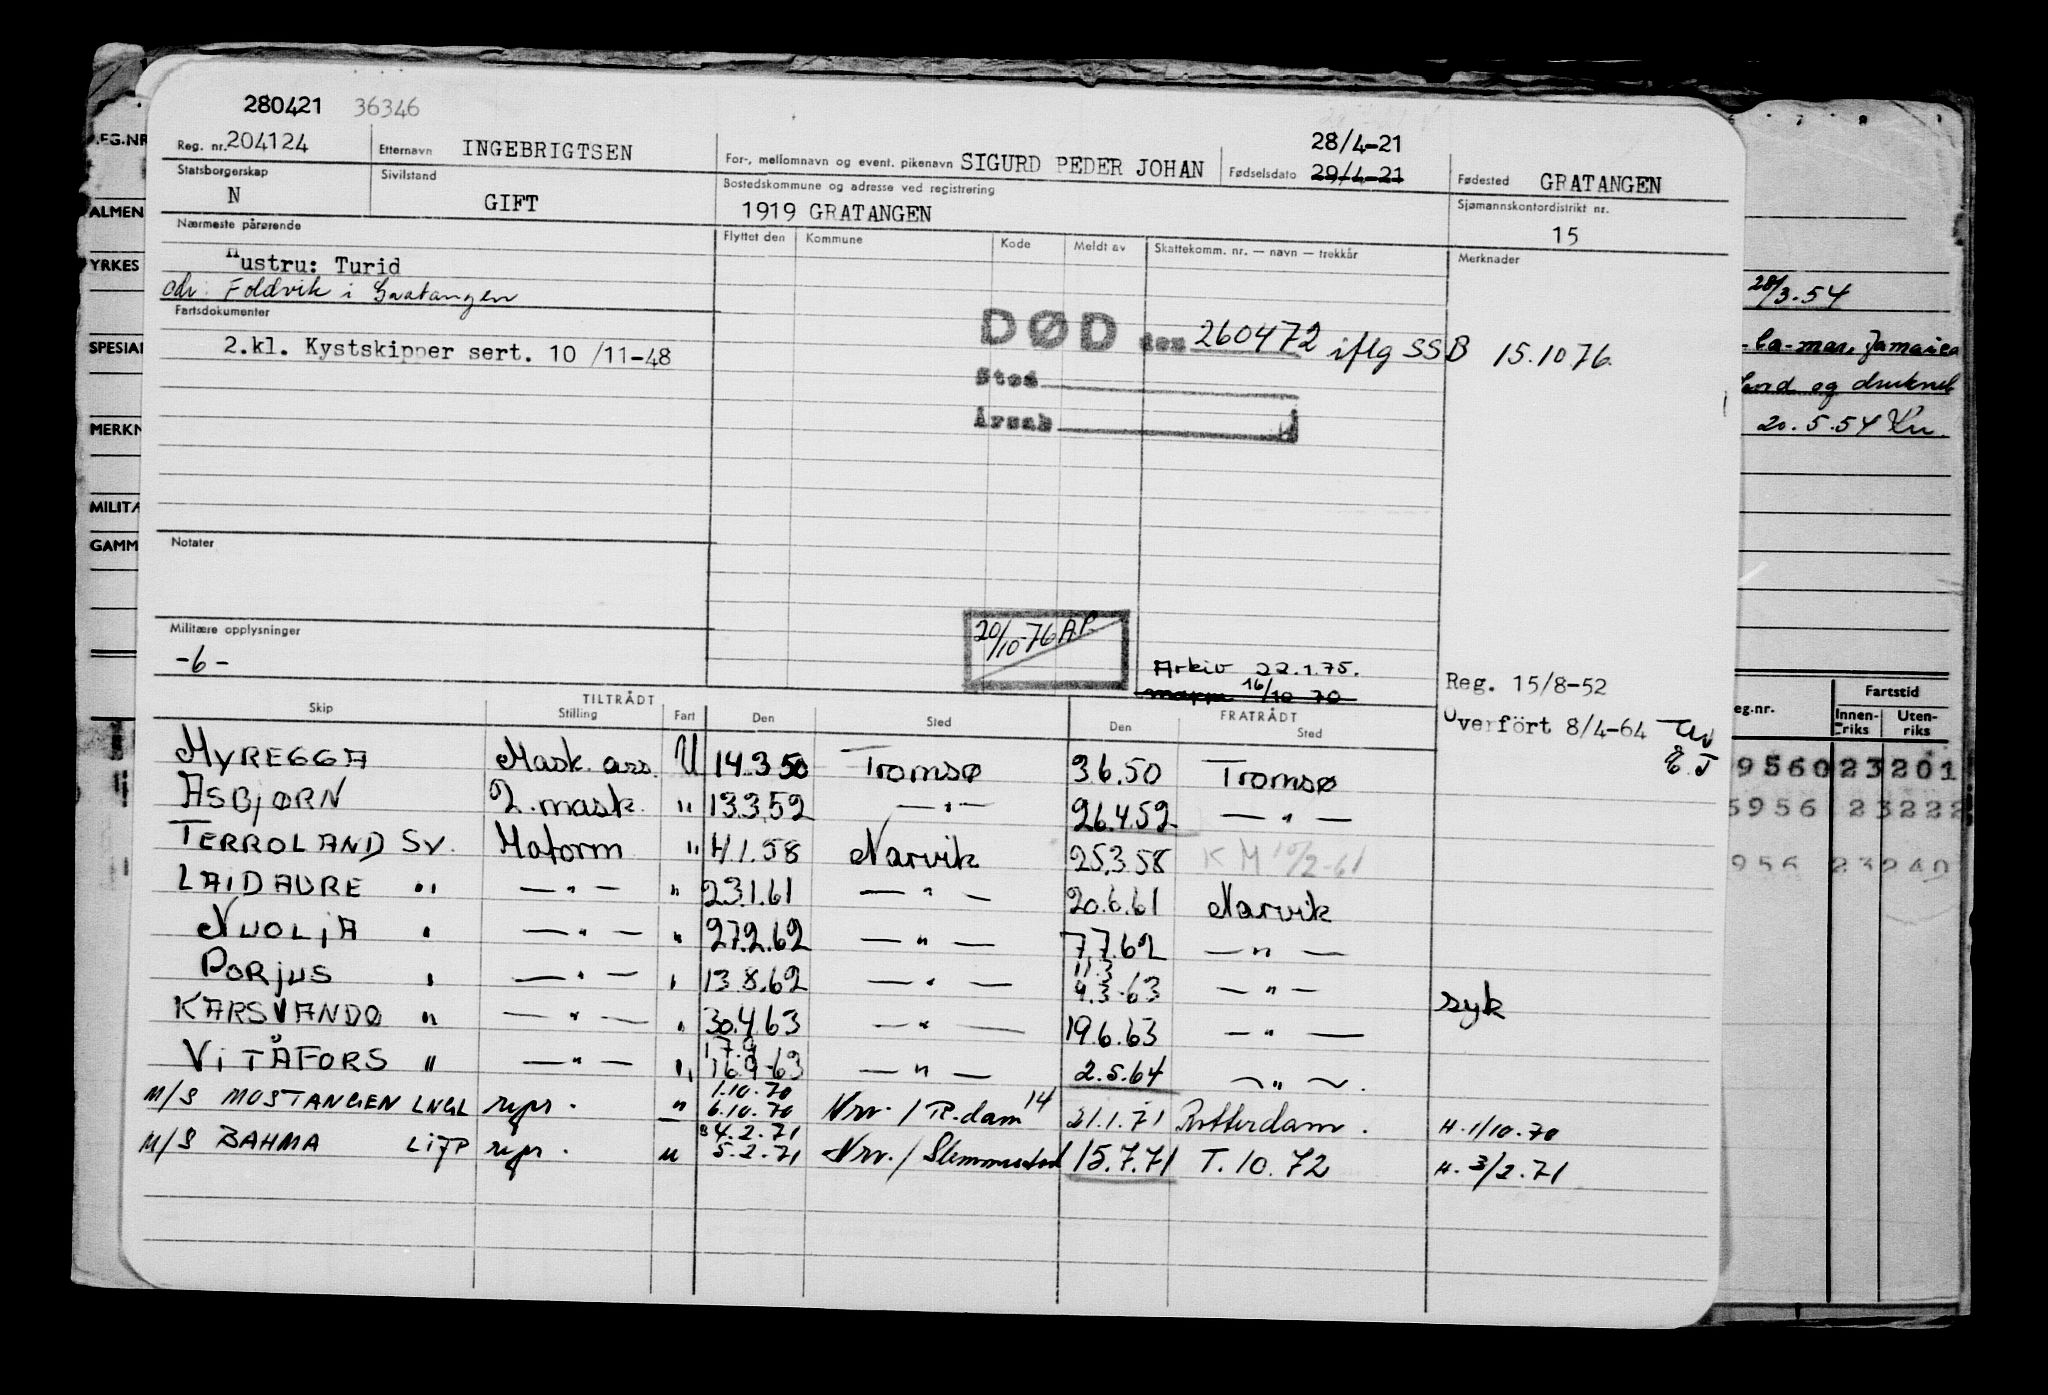 280421 36346
Reg. nr. 204124 Etternavn INGEBRIGTSEN For-, mellomnavn og event. pikenavn SIGURD PEDER JOHAN Fødselsdato 28/4-21 29/4-21 Fødested GRATANGEN
Statsborgerskap N Sivilstand GIFT Bostedskommune og adresse ved registrering 1919 GRATANGEN Sjømannskontordistrikt nr. 15
Nærmeste pårørende Flyttet den Kommune Kode Meldt av Skattekomm. nr. — navn — trekkår Merknader
Hustru: Turid
adr. Foldvik i Gratangen
Fartsdokumenter
2.kl. Kystskipper sert. 10 /11-48
DØD den 260472 iflg SSB 15.10 76.
Sted
Årsak
Notater
20/10-76 A.P.
Militære opplysninger
-6-
Arkiv 22.1.75.
16/10 70
Reg. 15/8-52
Overfört 8/4-64
E.J
TILTRÅDT FRATRÅDT
Skip Stilling Fart Den Sted Den Sted
MYREGGA Mask. ass. U 14.3 50 Tromsø 3.6.50 Tromsø
ASBJØRN 2. mask. " 13.3.52 — " — 26.4.52 — " —
TERROLAND SV. Motorm " 4.1.58 Narvik 25.3.58 KM 10/2-61
LAIDAURE " — " — " 23.1.61 — " — 20.6.61 Narvik
NUOLJA " — " — " 27.2.62 — " — 7.7.62 — " —
PORJUS " — " — " 13.8.62 — " — 11.3 4.3-63 — " — syk
KARSVANDO " — " — " 30.4.63 — " — 19.6.63 — " —
VITÅFORS " — " — " 17.9 16.9-63 — " — 2.5.64 — " —.
M/S MOSTANGEN LNGL repr. " 1.10.70 6.10.70 Nrv. / R.dam 14 21.1.71 Rotterdam. H. 1/10.70
M/S BAHMA LIJP repr. u 4.2.71 5.2.71 Nrv. / Slemmestad 15.7.71 T. 10. 72 H. 3/2.71
ALMEN
YRKES
SPESIAL
MERKN
MILITÆ
GAMM
28/3.54
-la-mar, Jamaica
og druknet
20.5.54
eg.nr. Fartstid
Innen-riks Uten-riks
9560 23 201
5956 23222
956 23240